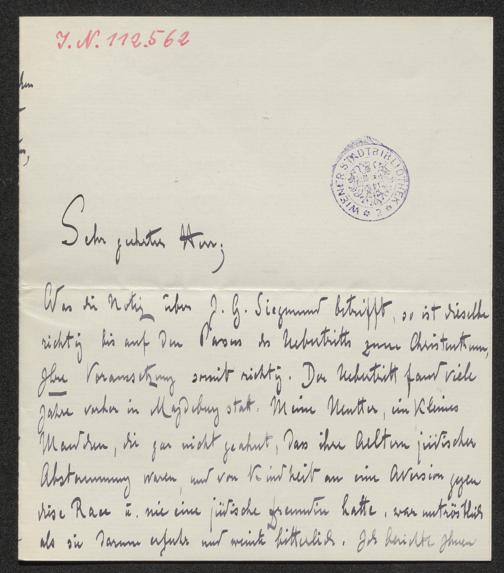 I.N. 112.562
WIENER STADTBIBLIOTHEK
Sehr geehrter Herr;
Was die Notiz über J. G. Siegmund betrifft, so ist dieselbe
richtig bis auf den Passus des Uebertritts zum Christenthum,
Ihre Voraussetzung somit richtig. Der Uebertritt fand viele
Jahre vorher in Magdeburg statt. Meine Mutter, ein kleines
Mädchen, die gar nicht geahnt, dass ihre Aeltern jüdischer
Abstammung waren, und von Kindheit an eine Aversion gegen
diese Race u. nie eine jüdische Freundin hatte, war untröstlich
als sie darum erfuhr und weinte bitterlich. Ich berichte Ihnen